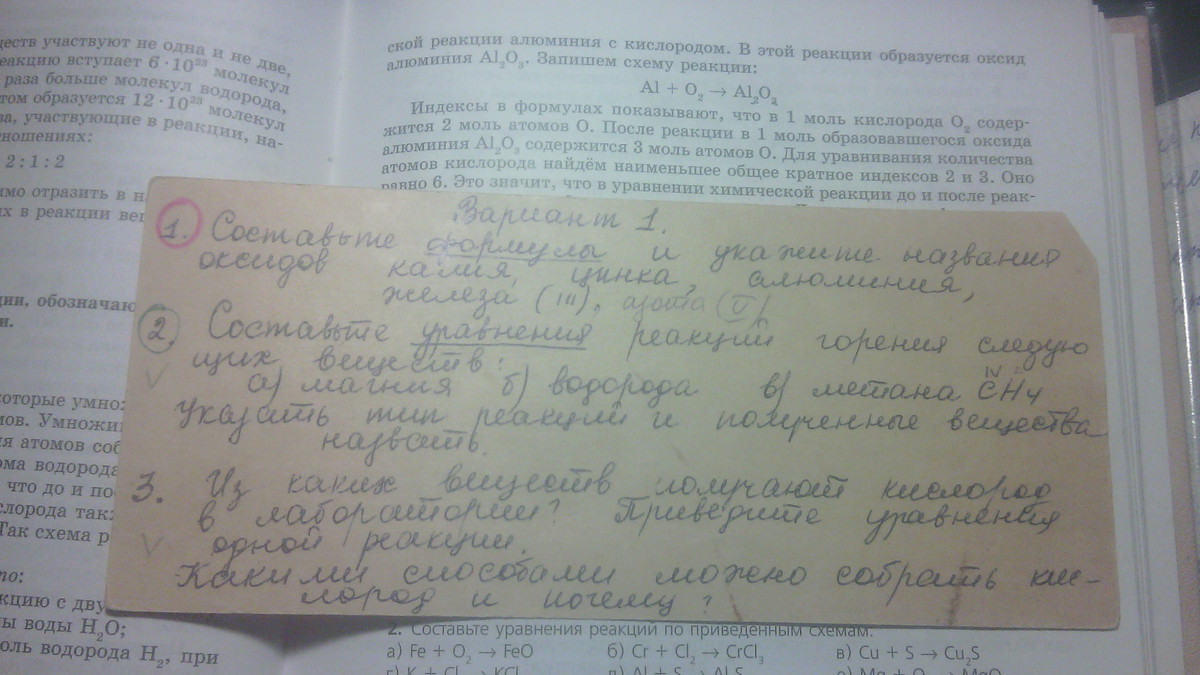 ществ участвуют не одна и не две,
реакцию вступает 6 · 10²³ молекул
раза больше молекул водорода,
том образуется 12 · 10²³ молекул
ва, участвующие в реакции, на-
ношениях:
2 : 1 : 2
имо отразить в н
их в реакции ве
ции, обозначаю
и.
которые умно
мов. Умножи
ия атомов соб
ома водорода
что до и по
слорода так:
Так схема р
то:
кцию с дву
лы воды H₂O;
оль водорода H₂, при
ской реакции алюминия с кислородом. В этой реакции образуется оксид
алюминия Al₂O₃. Запишем схему реакции:
Al + O₂ → Al₂O₃
Индексы в формулах показывают, что в 1 моль кислорода O₂ содер-
жится 2 моль атомов O. После реакции в 1 моль образовавшегося оксида
алюминия Al₂O₃ содержится 3 моль атомов O. Для уравнивания количества
атомов кислорода найдём наименьшее общее кратное индексов 2 и 3. Оно
равно 6. Это значит, что в уравнении химической реакции до и после реак-
Вариант 1.
1. Составьте формулы и укажите названия
оксидов калия, цинка, алюминия,
железа (III), азота (V)
2. Составьте уравнения реакций горения следую
щих веществ:
а) магния б) водорода в) метана CH₄
IV
Указать тип реакции и полученные вещества
назвать.
3. Из каких веществ получают кислород
в лаборатории? Приведите уравнения
одной реакции.
Какими способами можно собрать кис-
лород и почему?
2. Составьте уравнения реакций по приведённым схемам:
а) Fe + O₂ → FeO б) Cr + Cl₂ → CrCl₃ в) Cu + S → Cu₂S